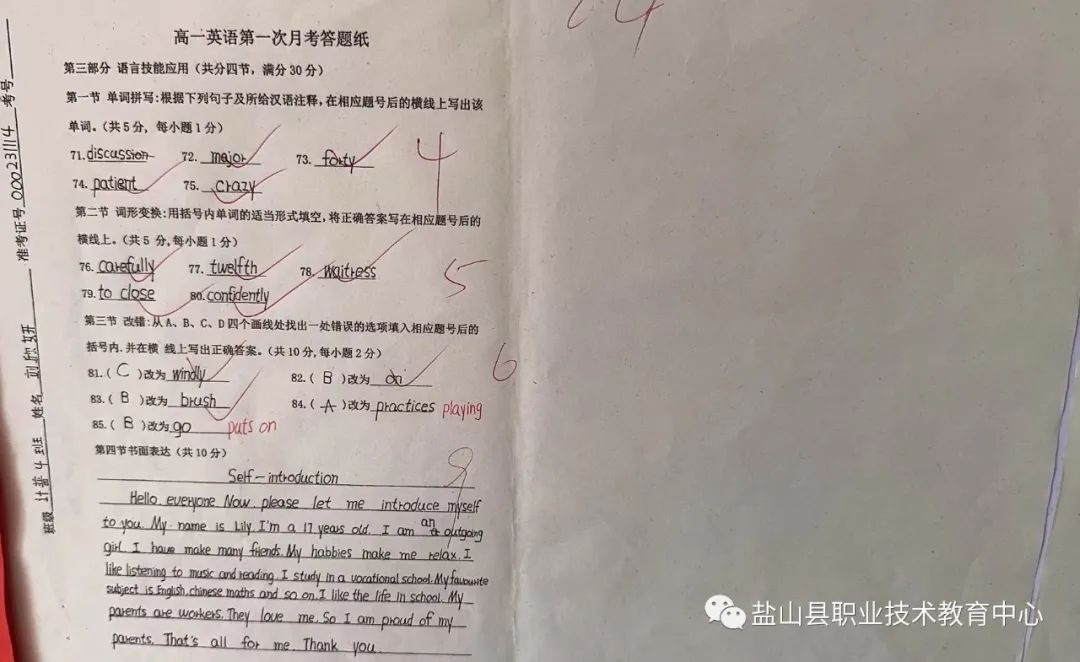 高一英语第一次月考答题纸
第三部分 语言技能应用（共分四节，满分30分）
第一节 单词拼写：根据下列句子及所给汉语注释，在相应题号后的横线上写出该
单词。（共5分，每小题1分）
71. discussion 72. major 73. forty
74. patient 75. crazy
4
第二节 词形变换：用括号内单词的适当形式填空，将正确答案写在相应题号后的
横线上。（共5 分，每小题1分）
76. carefully 77. twelfth 78. waitress
79. to close 80. confidently
5
第三节 改错：从A、B、C、D四个画线处找出一处错误的选项填入相应题号后的
括号内.并在横 线上写出正确答案。（共10分，每小题2分）
81.( C )改为 windly 82.( B )改为 on
83.( B )改为 brush 84.( A )改为 practices playing
85.( B )改为 go puts on
6
第四节书面表达（共10分）
9
Self-introduction
Hello. everyone. Now please let me introduce myself
to you. My name is Lily. I'm a 17 years old. I am an outgoing
girl. I have make many friends. My habbies make me relax. I
like listening to music and reading. I study in a vocational school. My favourite
subject is English, chinese maths and so on. I like the life in school. My
parents are workers. They love me. So I am proud of my
parents. That's all for me. Thank you.
班级 计普4班 姓名 准考证号 00023114 考号
24
盐山县职业技术教育中心